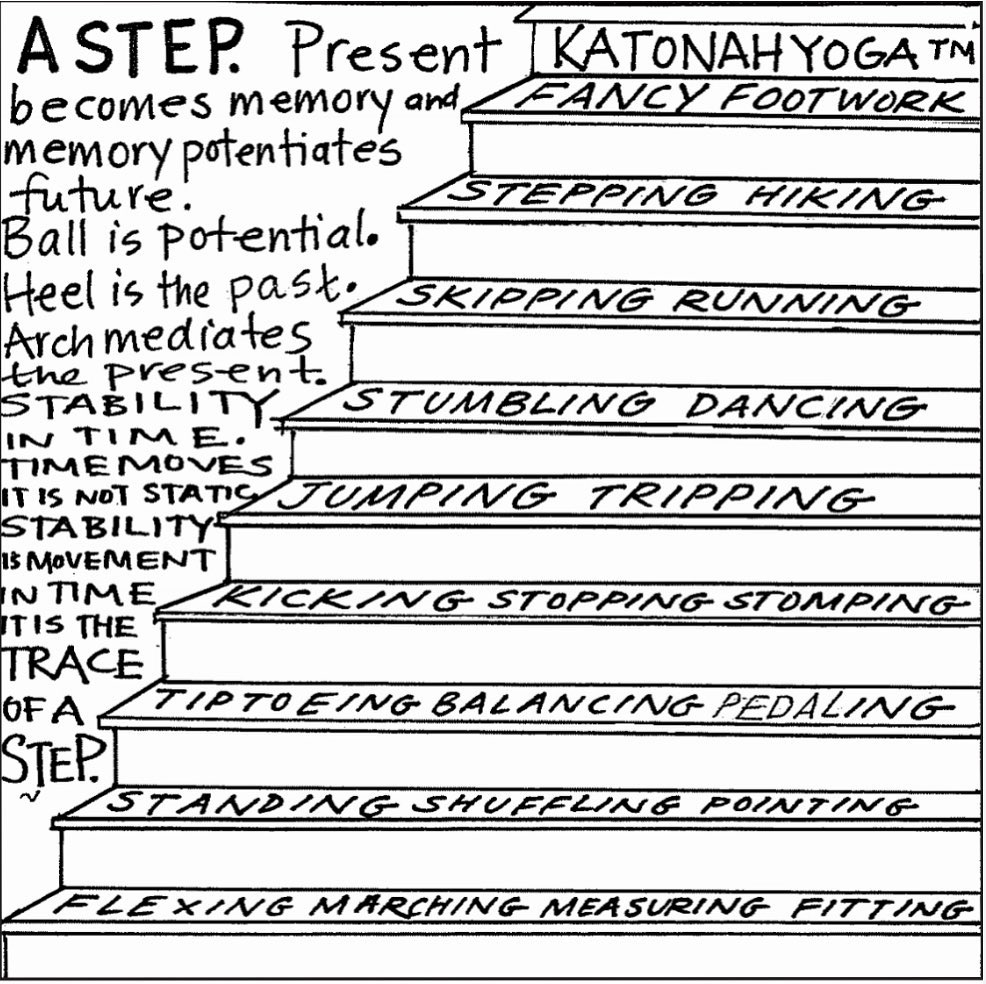 A STEP. Present
becomes memory and
memory potentiates
future.
Ball is potential.
Heel is the past.
Arch mediates
the present.
STABILITY
IN TIME.
TIME MOVES
IT IS NOT STATIC
STABILITY
IS MOVEMENT
IN TIME
IT IS THE
TRACE
OF A
STEP.
KATONAH YOGA TM
FANCY FOOTWORK
STEPPING HIKING
SKIPPING RUNNING
STUMBLING DANCING
JUMPING TRIPPING
KICKING STOPPING STOMPING
TIPTOEING BALANCING PEDALING
STANDING SHUFFLING POINTING
FLEXING MARCHING MEASURING FITTING